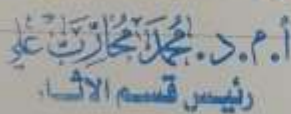 أ.م.د. محمد مجازت علي
رئيس قسم الاثا